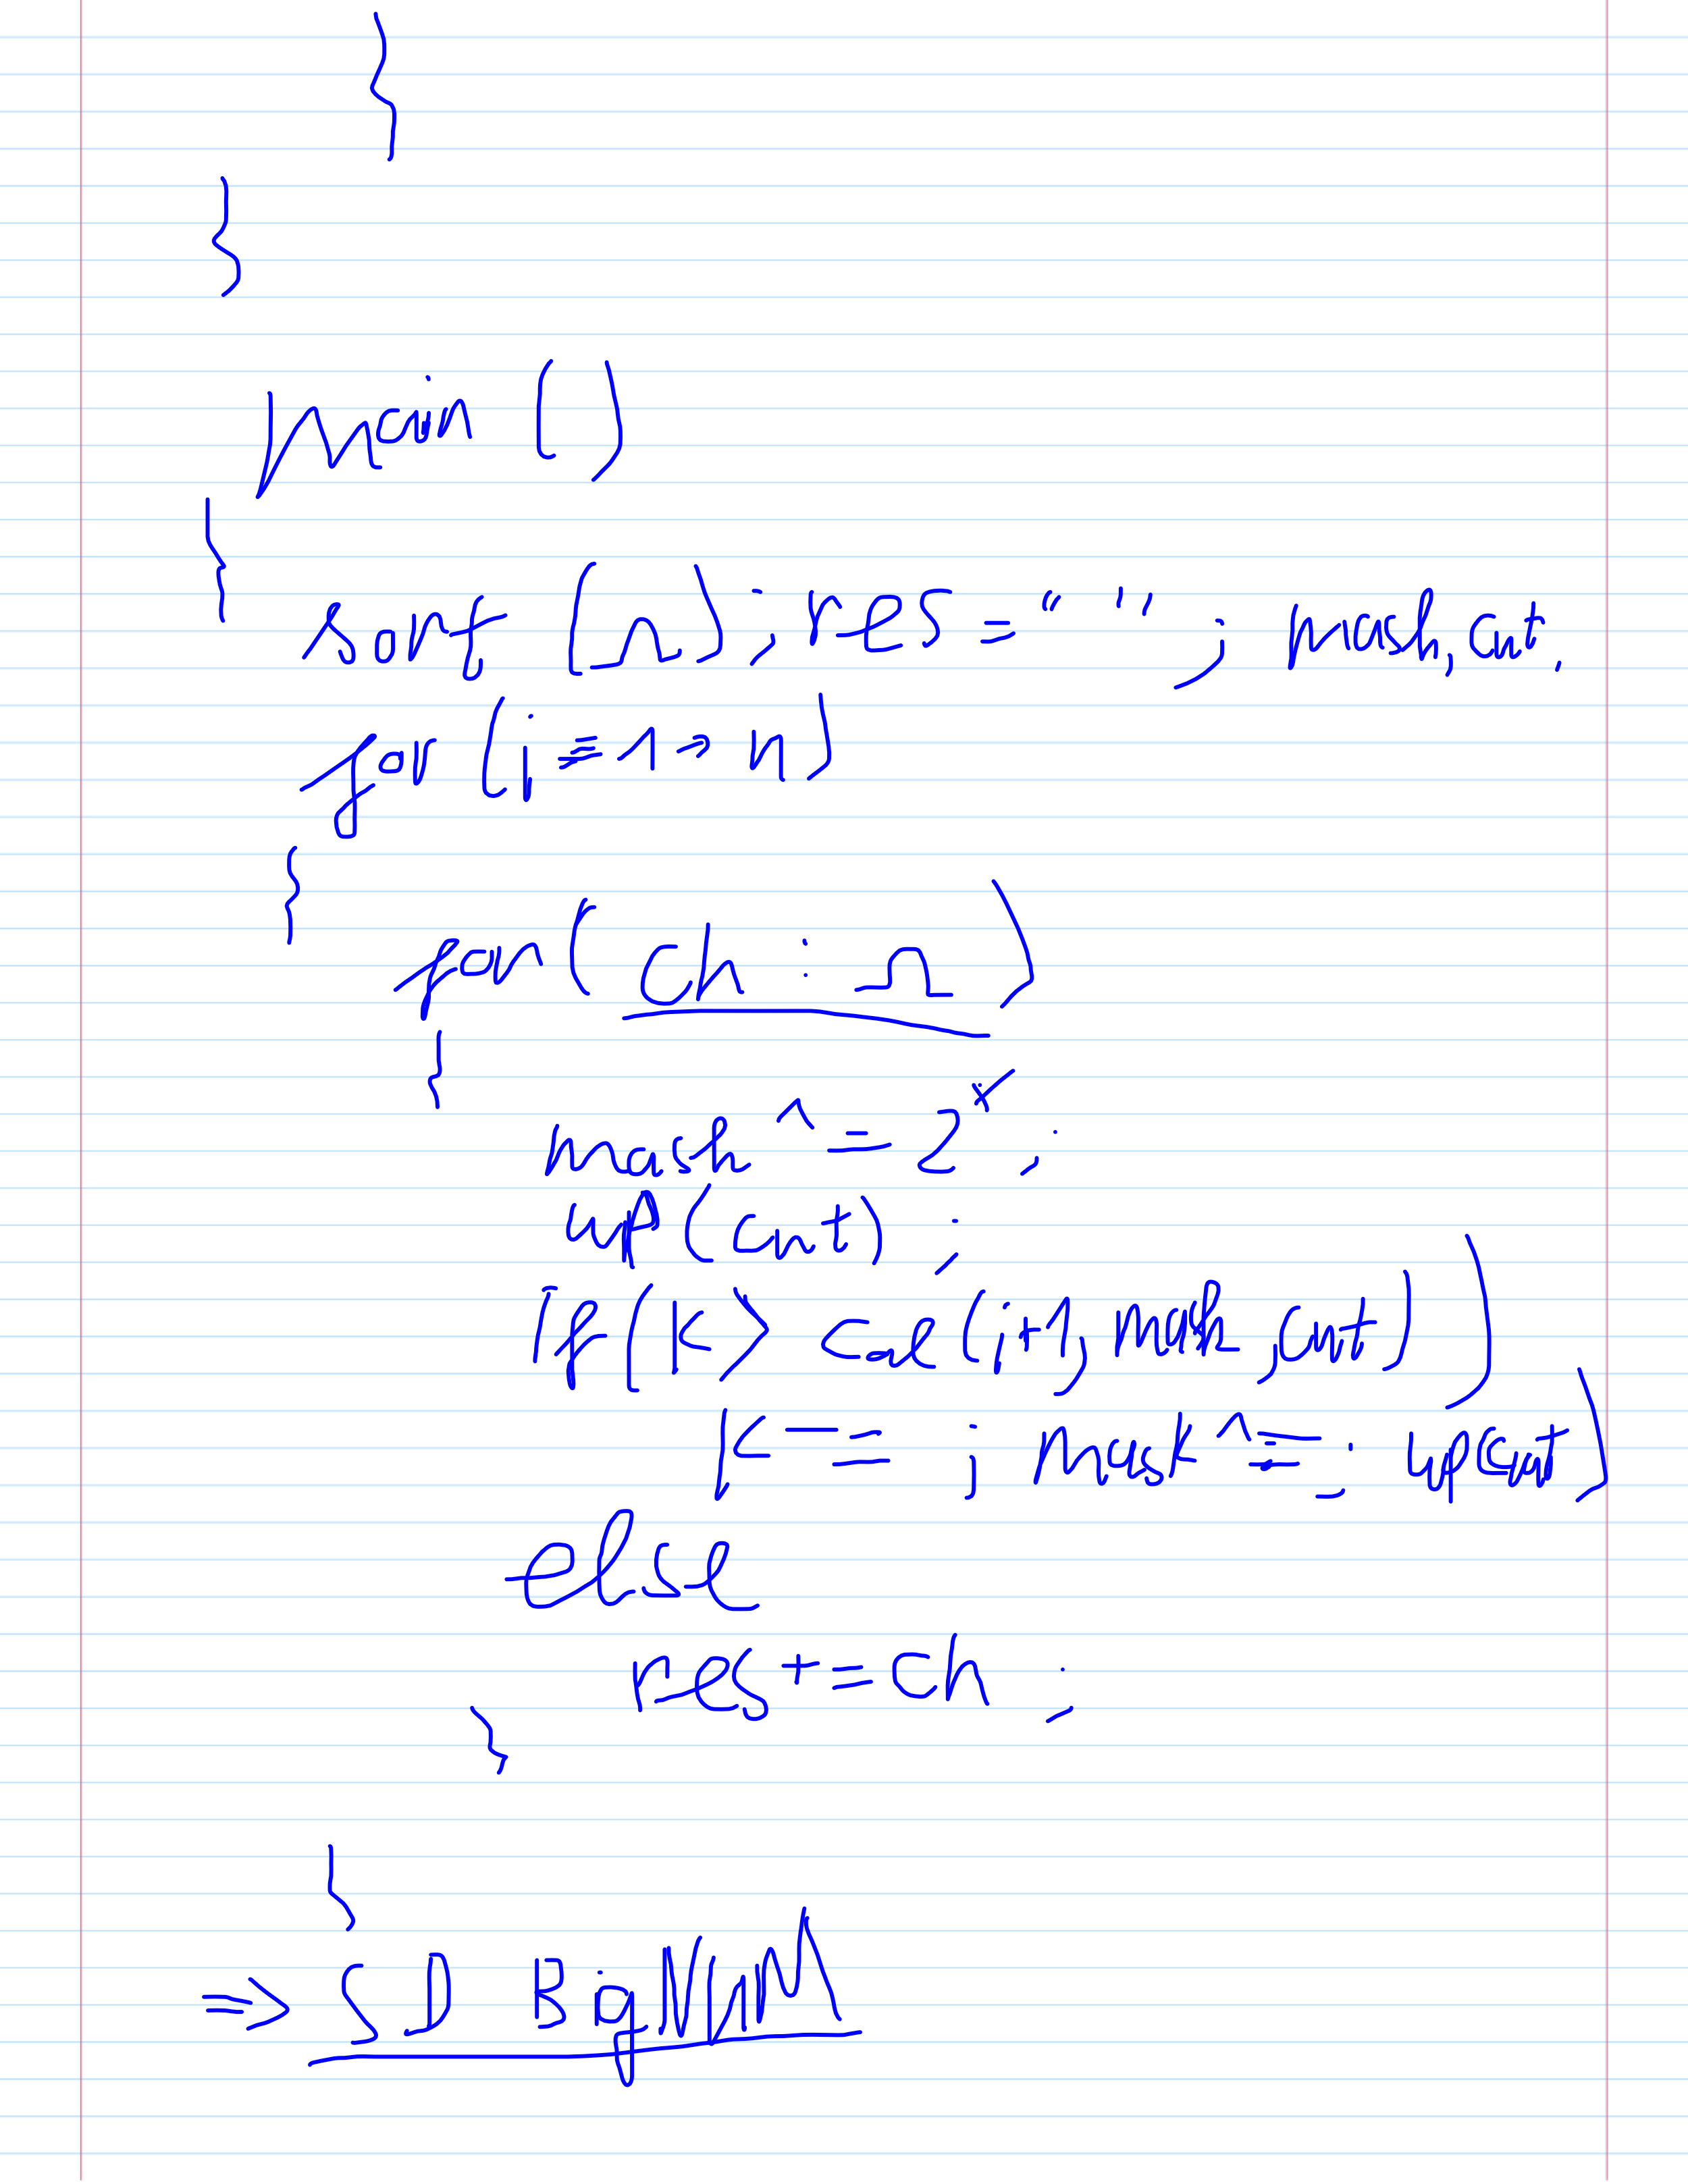 }
}
main ()
{
sort (s) ; res = " " ; mask, cnt ;
for (i = 1 -> n)
{
for ( ch : s )
{
mask ^ = 2^x ;
up(cnt) ;
if ( K > cal (i+1, mask, cnt) )
K - = ; mask ^ = ; upcnt )
else
res + = ch ;
}
}
=> SD BigNum